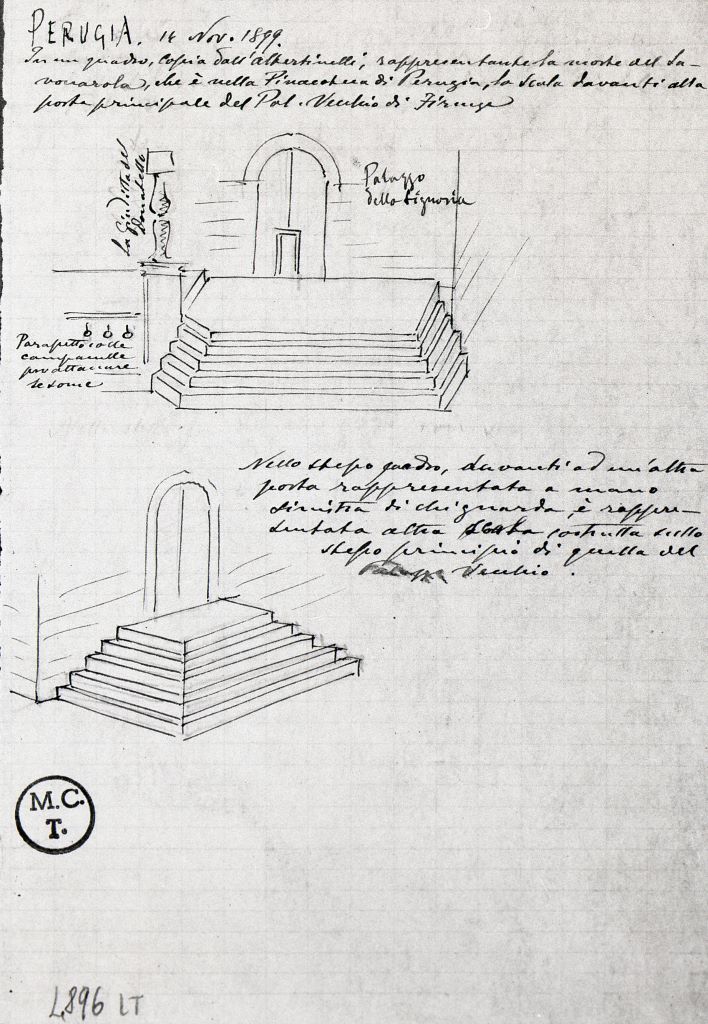 PERUGIA. 14 Nov. 1899.
In un quadro, copia dall'Albertinelli, rappresentante la morte del Sa-
vonarola, che è nella Pinacoteca di Perugia, la scala davanti alla
porta principale del Pal. Vecchio di Firenze
La Giuditta del
Donatello
Palazzo
della Signoria
Parapetto colle
campanelle
per attaccare
le some
Nello stesso quadro, davanti ad un'altra
porta rappresentata a mano
sinistra di chi guarda, è rappre-
sentata altra scala costrutta sullo
stesso principio di quella del
Palazzo Vecchio.
M.C.
T.
L896 LT